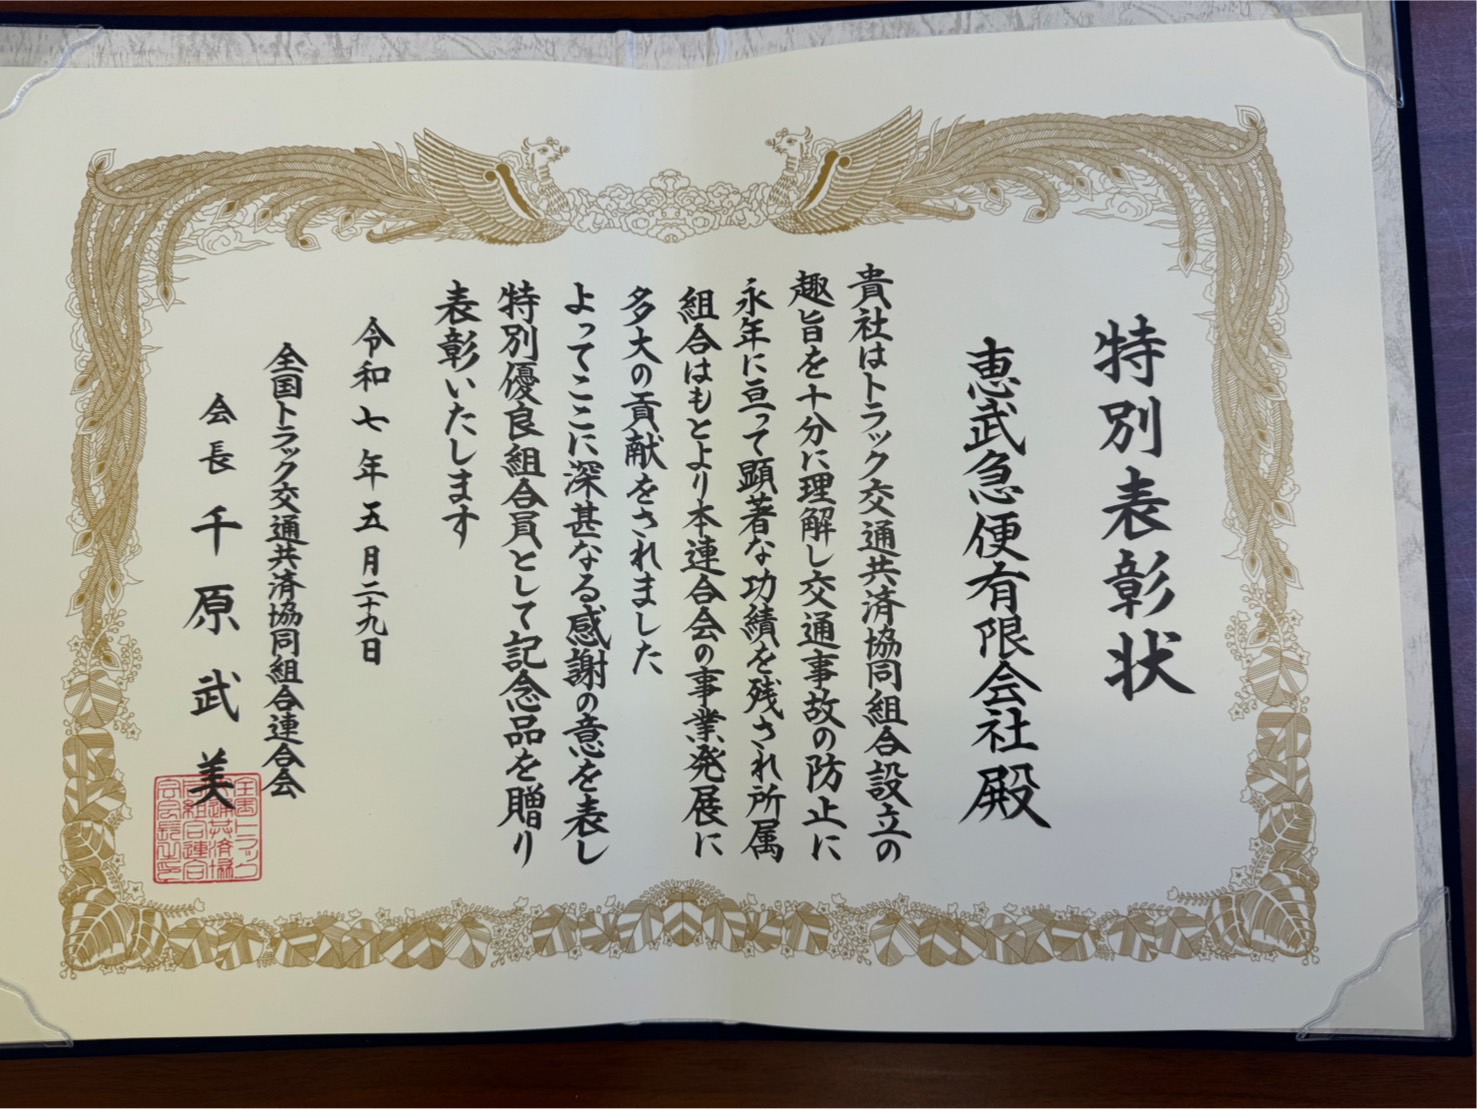 特別表彰状
恵武急便有限会社殿
貴社はトラック交通共済協同組合設立の
趣旨を十分に理解し交通事故の防止に
永年に亘って顕著な功績を残され所属
組合はもとより本連合会の事業発展に
多大の貢献をされました
よってここに深甚なる感謝の意を表し
特別優良組合員として記念品を贈り
表彰いたします
令和七年五月二十九日
全国トラック交通共済協同組合連合会
会長 千原武美
全国トラック
交通共済協
同組合連合
会会長之印